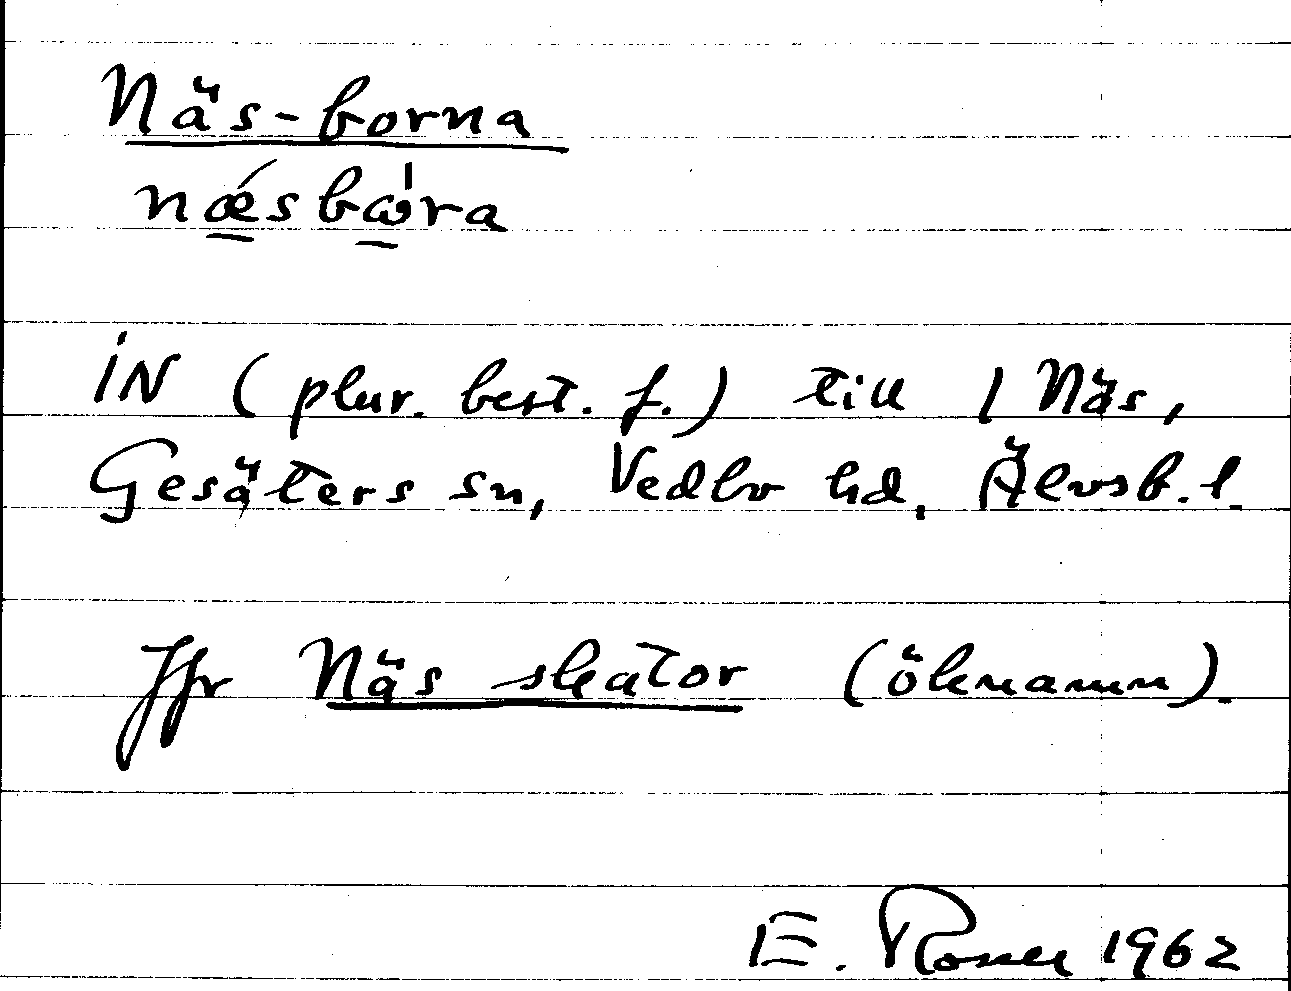 Näs-borna
nǽ̱sbω̱̍ra
iN (plur. best. f.) till 1 Näs,
Gesäters sn, Vedbo hd, Älvsb. l.
Jfr Näs skator (öknamn).
E. Rosell 1962